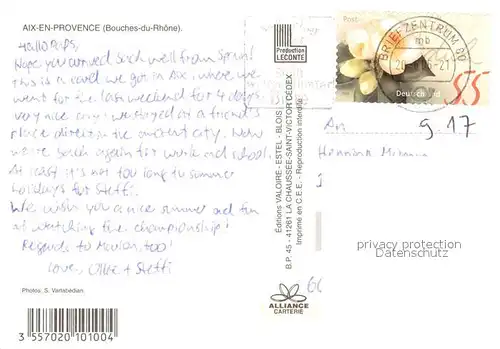 AIX-EN-PROVENCE (Bouches-du-Rhône).
Hallo Paps,
Hope you arrived back well from Spain!
This is a card we got in Aix, where we
went for the last weekend for 4 days.
very nice city! we stayed at a friend's
place direct in the ancient city. Now
we're back again for work and school.
At least it's not too long to summer
holidays for Steffi.
We wish you a nice summer and fun
at watching the championship!
Regards to too!
Love, + Steffi
Photos: S. Vartabédian.
3 557020 101004
Production
LECONTE
Éditions VALOIRE - ESTEL - BLOIS
B.P. 45 - 41261 LA CHAUSSÉE-SAINT-VICTOR CEDEX
Imprimé en C.E.E. - Reproduction interdite
ALLIANCE
CARTERIE
Post
BRIEFZENTRUM
mb
Deutschland
55
An
9.17
privacy protection
Datenschutz